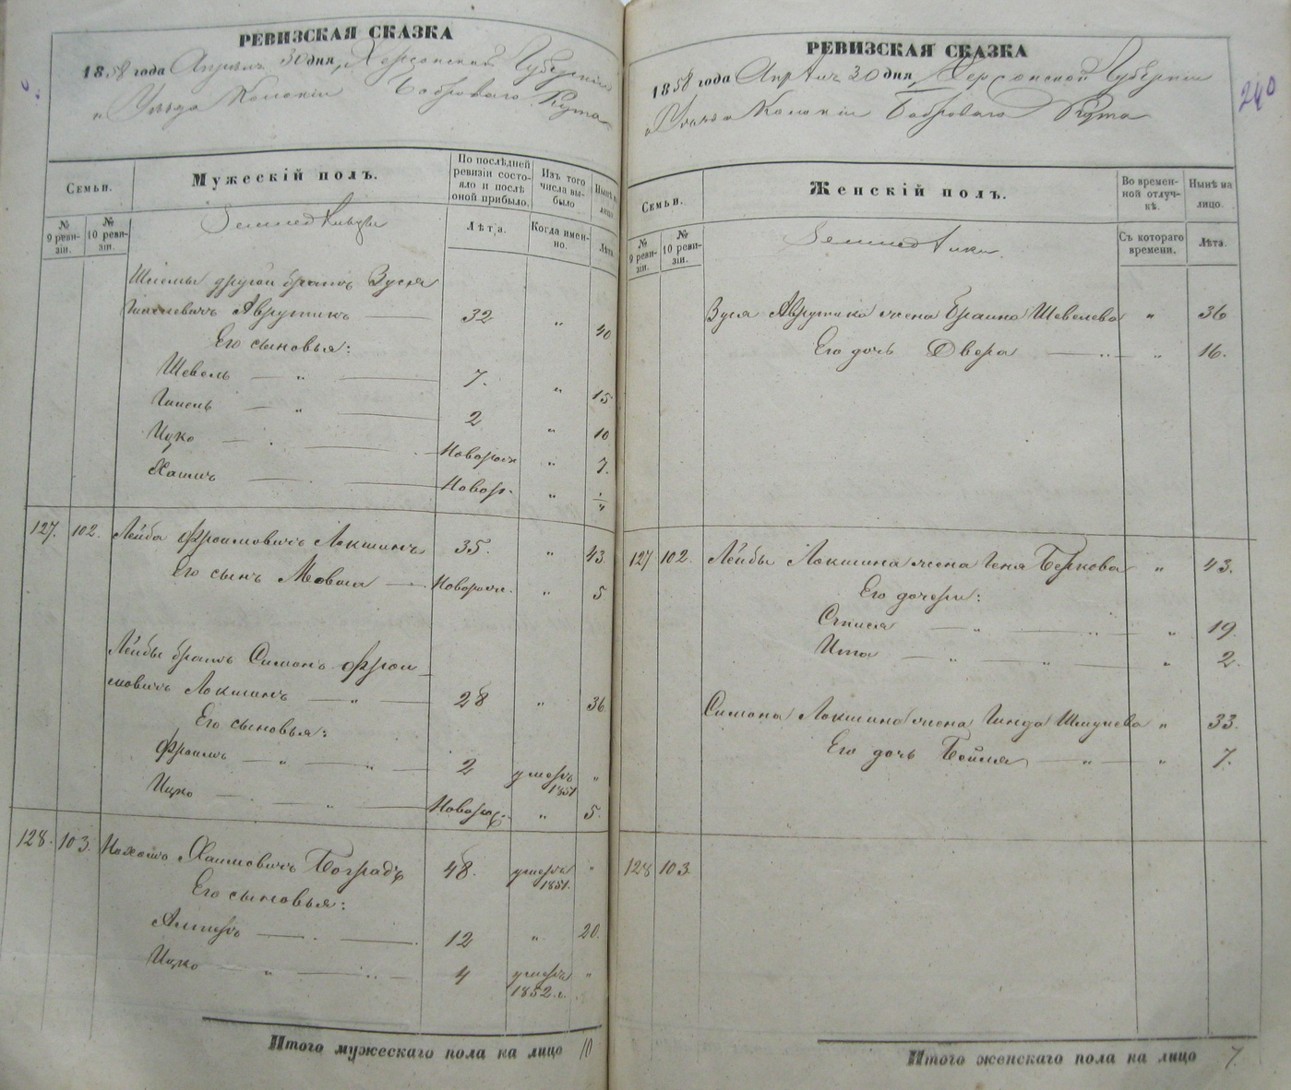 РЕВИЗСКАЯ СКАЗКА
1858 года Апрѣля 30 дня, Херсонской Губерніи
Уѣзда Колоніи Боброваго Кута
Семьи.
Мужескій полъ.
По послѣдней ревизіи состояло и послѣ оной прибыло.
Изъ того числа выбыло
Нынѣ на лицо.
№ 9 ревизіи.
№ 10 ревизіи.
Лѣта.
Когда именно.
Лѣта.
Земледѣльцы
Шлемы другой братъ Зуся
Аврутинъ 32 " 40
Его сыновья:
Шевель " 7. " 15
2 " 10
Ицко Новорожд " 7.
Хаимъ Новор. "
127. 102. Лейба Фроимовичъ Локшинъ 35. " 43.
Его сынъ Мовша Новорожд. " 5
Лейбы братъ Симонъ Фрои-
мовичъ Локшинъ " 28 " 36
Его сыновья:
Фроимъ " " 2 умеръ 1851 "
Ицко " Новорожд. " 5.
128. 103. Хаимовичъ Боградъ 48. умеръ 1851. "
Его сыновья:
Алтеръ 12 " 20.
Ицко " 4 умеръ 1852 г. "
Итого мужескаго пола на лицо 10
РЕВИЗСКАЯ СКАЗКА
1858 года Апрѣля 30 дня, Херсонской Губерніи
Уѣзда Колоніи Боброваго Кута
240
Семьи.
Женскій полъ.
Во временной отлучкѣ.
Нынѣ на лицо.
№ 9 ревизіи.
№ 10 ревизіи.
Съ котораго времени.
Лѣта.
Зуся Аврутина жена Браина Шевелева " 36
Его дочь Двера " " 16.
127 102. Лейбы Локшина жена Геня Беркова " 43.
Его дочери:
" " " 19.
Ита " " " 2.
Симона Локшина жена Гинда Шмулева " 33.
Его дочь Бейля " " 7.
128 103.
Итого женскаго пола на лицо 7.